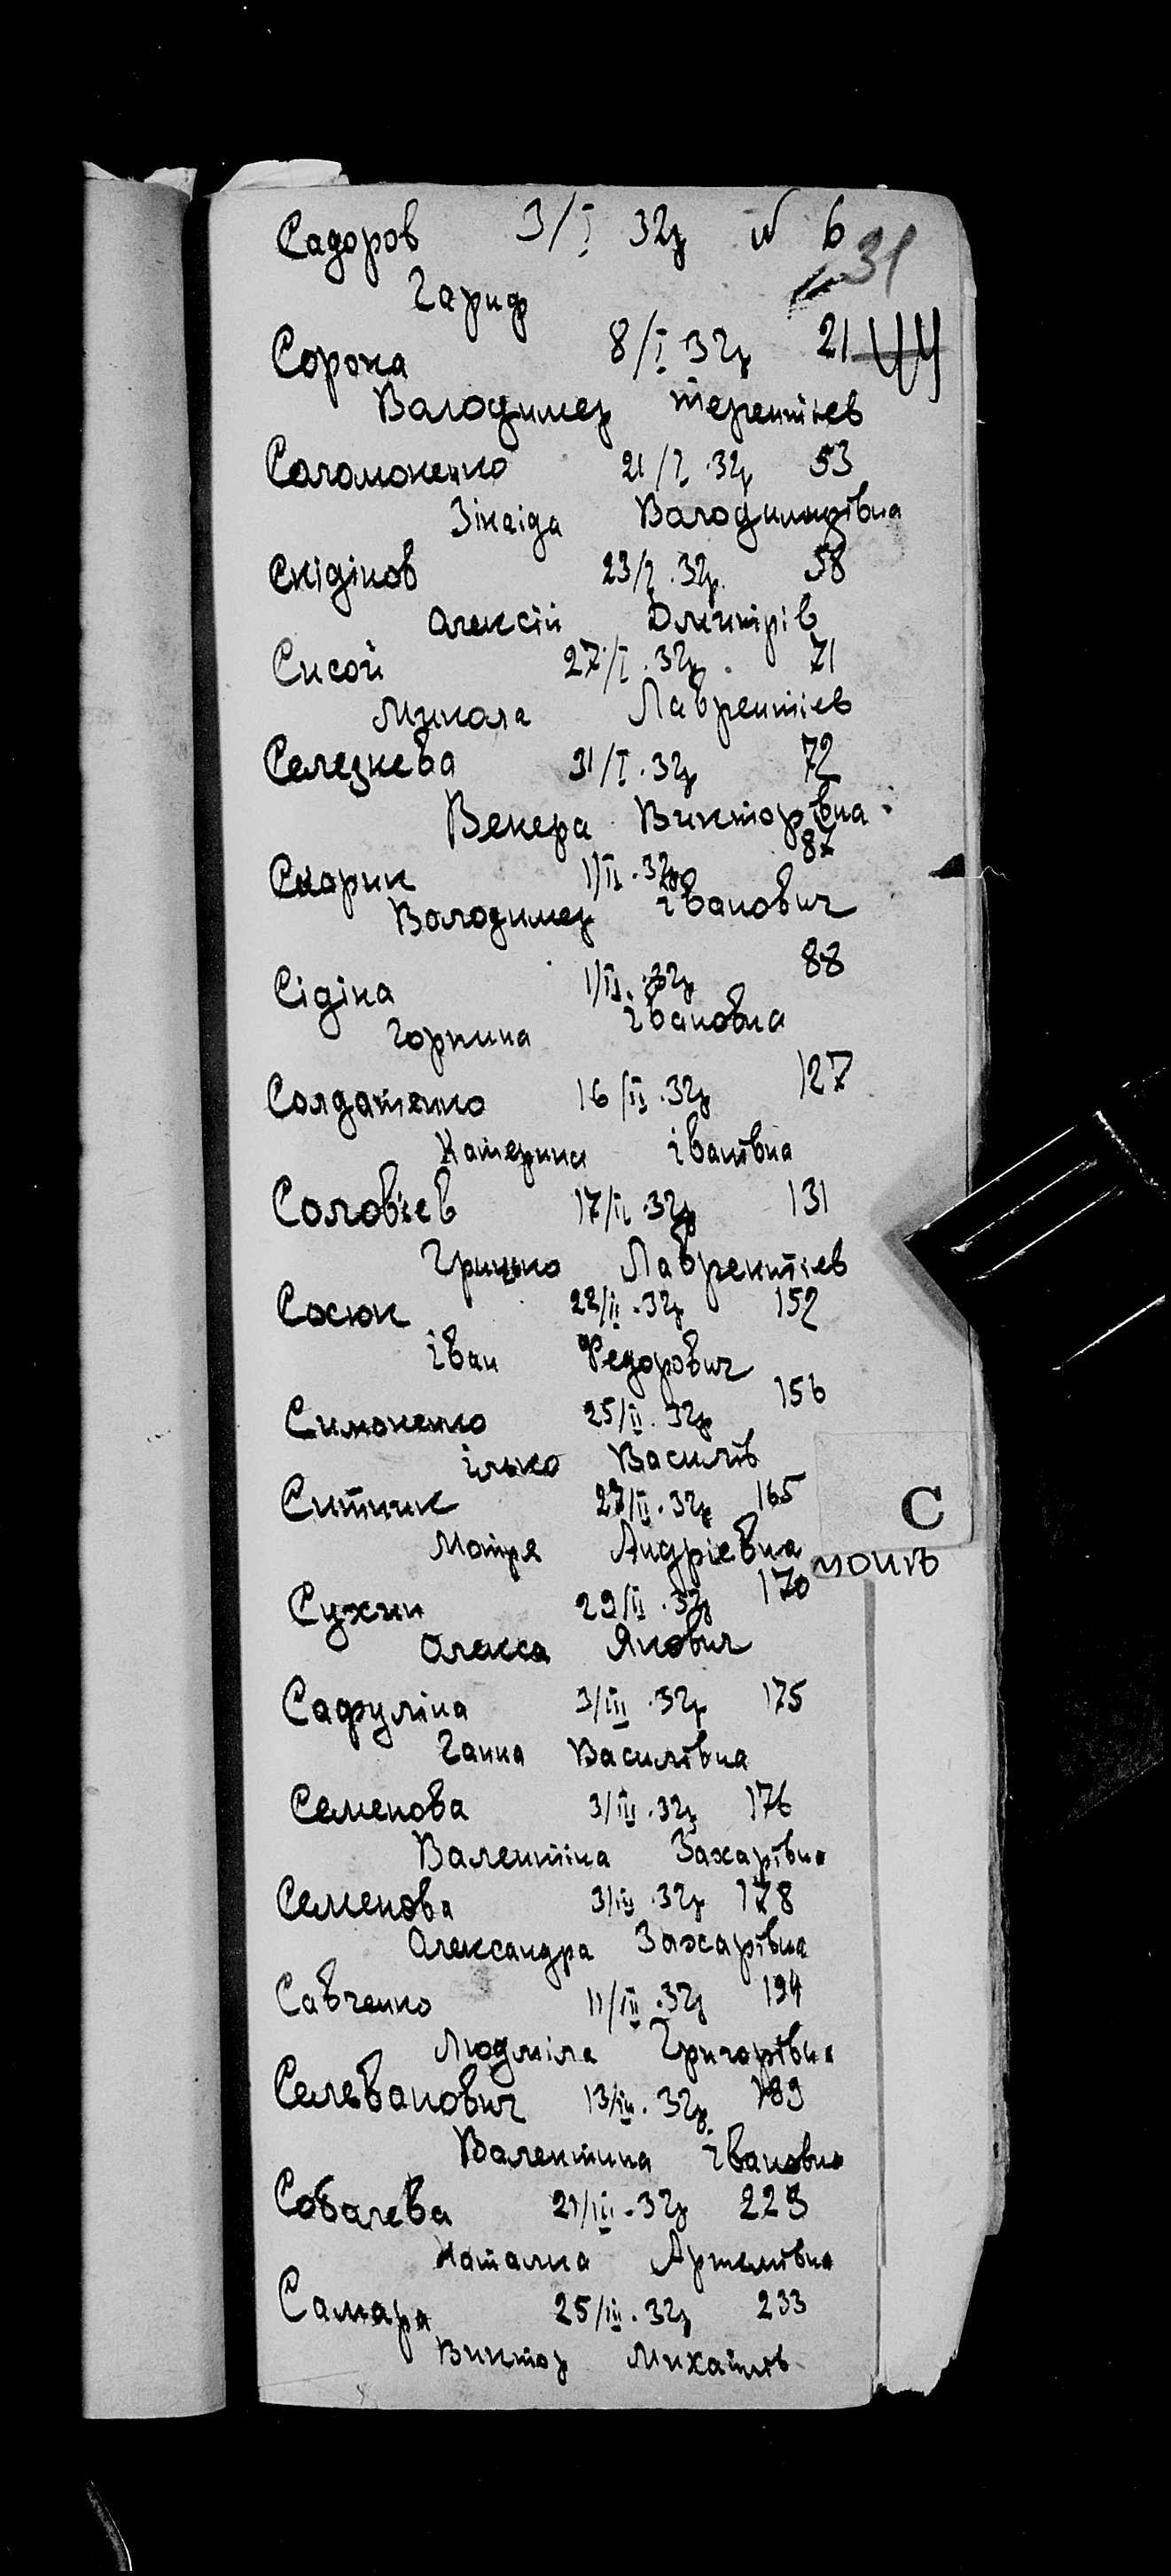 Садоров 3/I 32р N 6
31
Гариф
Сорока 8/I 32р 21 44
Володимер Терентіев
Соломоненко 21/I 32р 53
Зінаіда Володимирівна
Скідінов 23/I.32р. 58
Олексій Дмитрів
Сисой 27/I.32р. 71
Микола Лаврентіев
Селезнева 31/I.32р 72
Венера Викторівна
Скорик 1/II.32р 87
Володимер Іванович
Сідіна 1/II.32р 88
Горпина Івановна
Солдатенко 16/II.32р 127
Катерина Іванівна
Соловіев 17/II.32р 131
Грицько Лаврентіев
Сосюк 22/II.32р 152
Іван Федорович
Симоненко 25/II.32р 156
Ілько Василів
Ситник 27/II.32р 165
Мотря Андріевна
С
Сухин 29/II.32р 170
Олекса Якович
Сафуліна 3/III.32р 175
Ганна Василівна
Семенова 3/III.32р 176
Валентіна Захарівна
Семенова 3/III.32р 178
Олександра Захарівна
Савченко 11/III.32р 194
Людміла Григорівна
Селеванович 13/III.32р. 189
Валентина Івановна
Собачева 21/III.32р 223
Наталка Артемівна
Самара 25/III.32р 233
Виктор Михайлів